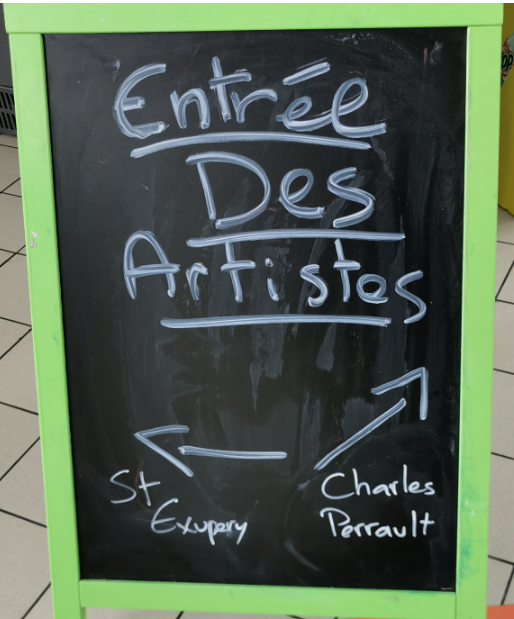 Entrée
Des
Artistes
St
Exupery
Charles
Perrault